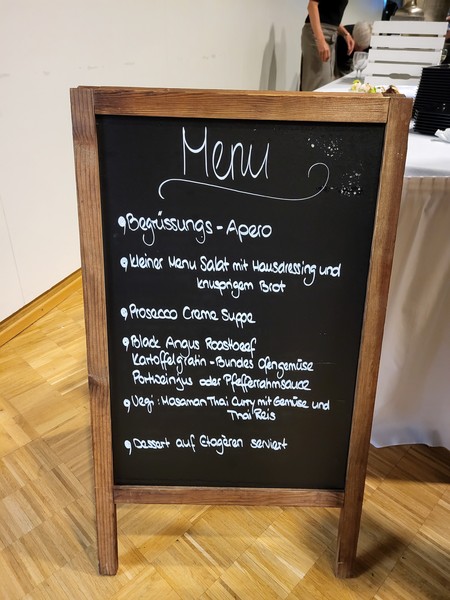 Menu
Begrüssungs - Apero
kleiner Menu Salat mit Hausdressing und
knusprigem Brot
Prosecco Creme Suppe
Black Angus Roastbeef
Kartoffelgratin - Bundes Ofengemüse
Portweinjus oder Pfefferrahmsauce
Vegi : Masaman Thai Curry mit Gemüse und
Thai Reis
Dessert auf Etageren serviert